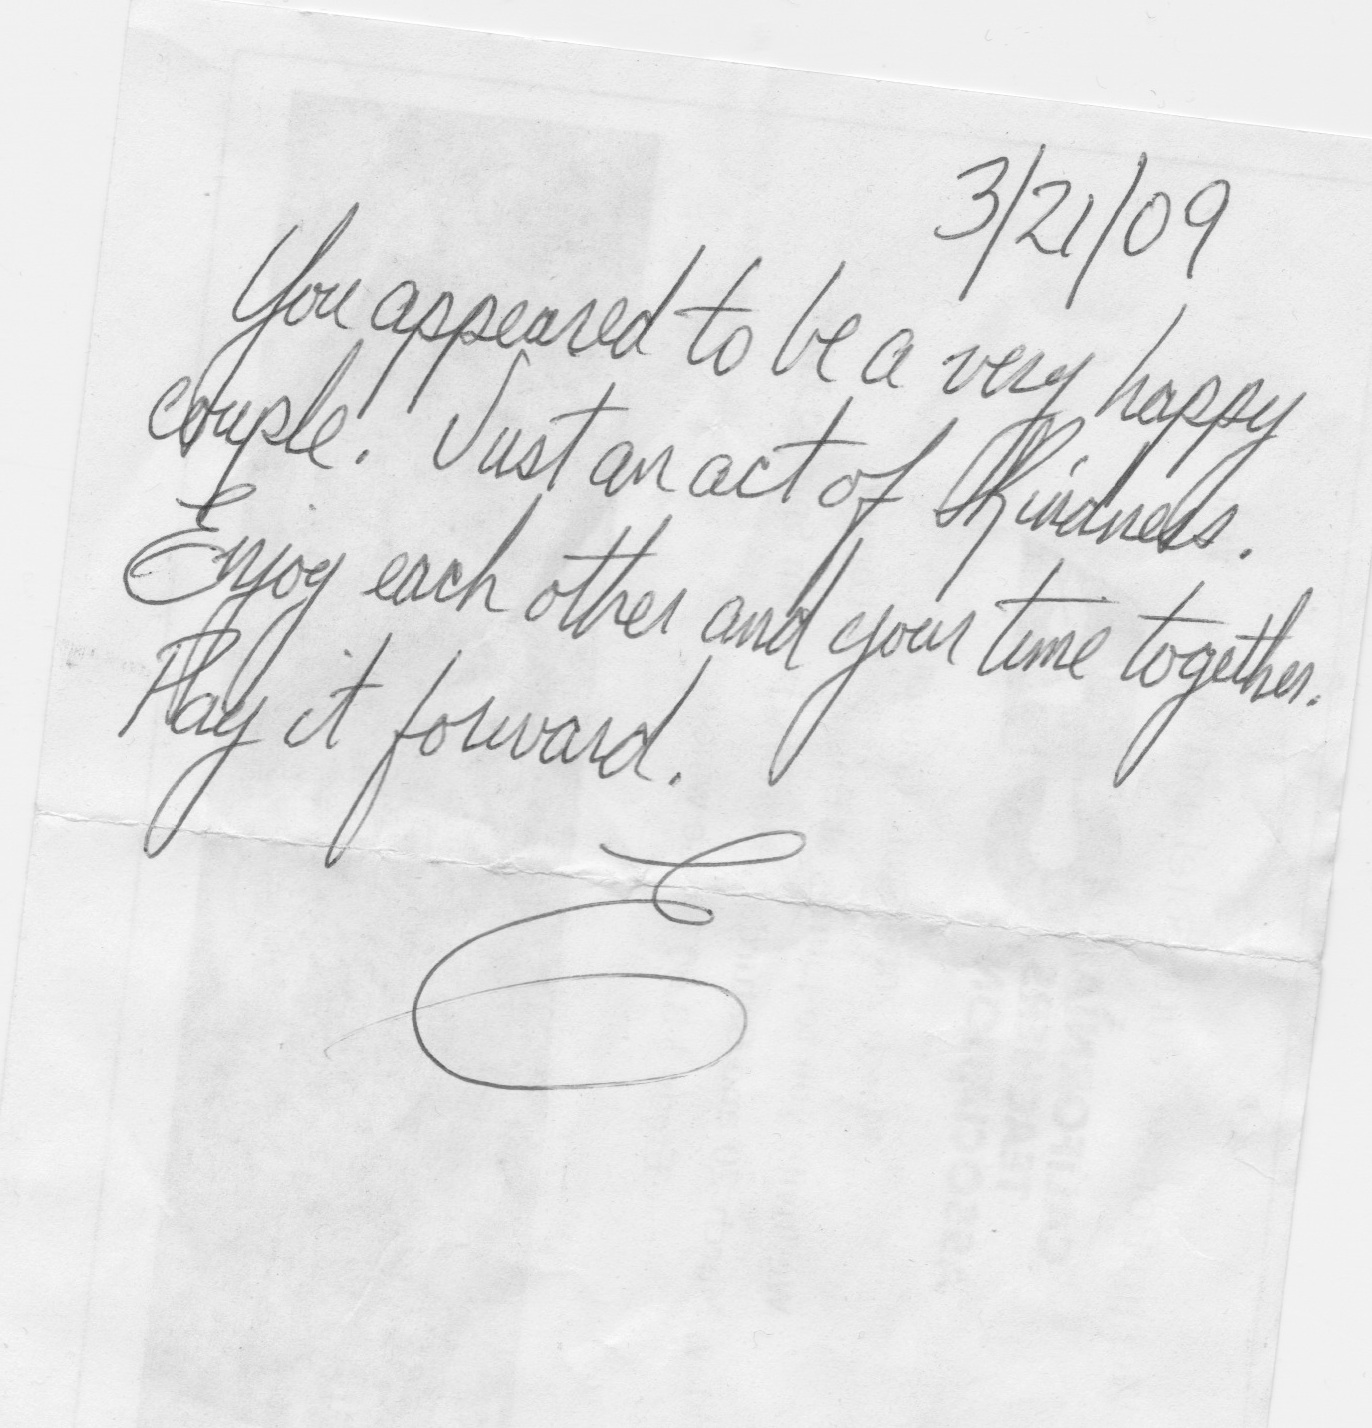 3/21/09
You appeared to be a very happy
couple. Just an act of Kindness.
Enjoy each other and your time together.
Play it forward.
E
ASSOCIATION
TEACHERS
CALIFORNIA